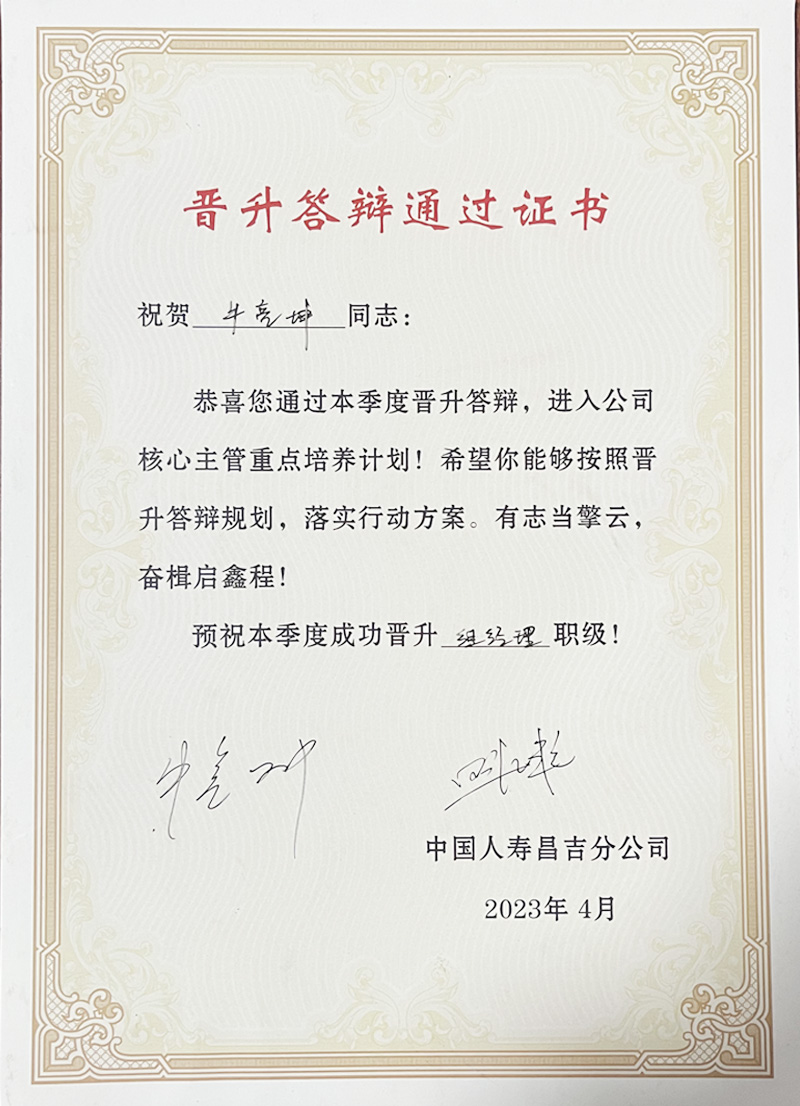 晋升答辩通过证书
祝贺 牛亮坤 同志：
恭喜您通过本季度晋升答辩，进入公司
核心主管重点培养计划！希望你能够按照晋
升答辩规划，落实行动方案。有志当擎云，
奋楫启鑫程！
预祝本季度成功晋升 组经理 职级！
中国人寿昌吉分公司
2023年 4月